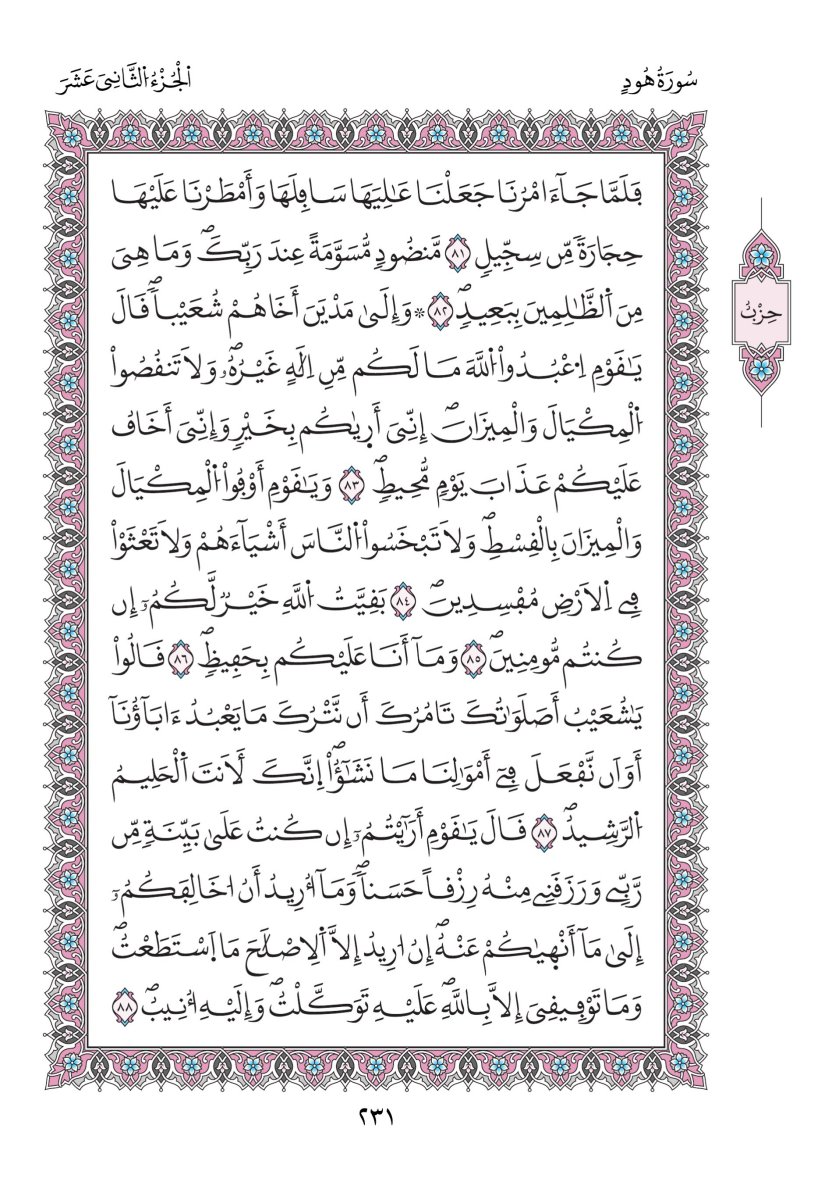 سُورَةُ هُودٍ
اَلْجُزْءُ اَلثَّانِى عَشَرَ
فَلَمَّا جَآءَ امْرُنَا جَعَلْنَا عَٰلِيَهَا سَافِلَهَا وَأَمْطَرْنَا عَلَيْهَا
حِجَارَةٗ مِّن سِجِّيلٖ ٨١ مَّنضُودٖ مُّسَوَّمَةً عِندَ رَبِّكَۖ وَمَا هِىَ
مِنَ اَ۬لظَّٰلِمِينَ بِبَعِيدٖۖ ٨٢ ۞وَإِلَىٰ مَدْيَنَ أَخَاهُمْ شُعَيْباٗۖ قَالَ
يَٰقَوْمِ اِ۟عْبُدُواْ اُ۬للَّهَ مَا لَكُم مِّنِ اِلَٰهٍ غَيْرُهُۥۖ وَلَا تَنقُصُواْ
اُ۬لْمِكْيَالَ وَالْمِيزَانَۖ إِنِّىَ أَر۪يٰكُم بِخَيْرٖ وَإِنِّىَ أَخَافُ
عَلَيْكُمْ عَذَابَ يَوْمٖ مُّحِيطٖۖ ٨٣ وَيَٰقَوْمِ أَوْفُواْ اُ۬لْمِكْيَالَ
وَالْمِيزَانَ بِالْقِسْطِۖ وَلَا تَبْخَسُواْ اُ۬لنَّاسَ أَشْيَآءَهُمْ وَلَا تَعْثَوْاْ
فِے اِ۬لَارْضِ مُفْسِدِينَۖ ٨٤ بَقِيَّتُ اُ۬للَّهِ خَيْرٞ لَّكُمُۥٓ إِن
كُنتُم مُّومِنِينَۖ ٨٥ وَمَآ أَنَا عَلَيْكُم بِحَفِيظٖۖ ٨٦ قَالُواْ
يَٰشُعَيْبُ أَصَلَوَٰتُكَ تَامُرُكَ أَن نَّتْرُكَ مَا يَعْبُدُ ءَابَآؤُنَآ
أَوَ اَن نَّفْعَلَ فِےٓ أَمْوَٰلِنَا مَا نَشَٰٓؤُاْۖ اِنَّكَ لَأَنتَ اَ۬لْحَلِيمُ
اُ۬لرَّشِيدُۖ ٨٧ قَالَ يَٰقَوْمِ أَرَٰٓيْتُمُۥٓ إِن كُنتُ عَلَىٰ بَيِّنَةٖ مِّن
رَّبِّے وَرَزَقَنِے مِنْهُ رِزْقاً حَسَناٗۖ وَمَآ أُرِيدُ أَنُ ا۟خَالِفَكُمُۥٓ
إِلَىٰ مَآ أَنْه۪يٰكُمْ عَنْهُۖ إِنُ ا۟رِيدُ إِلَّا اَ۬لِاصْلَٰحَ مَا اَ۪سْتَطَعْتُۖ
وَمَا تَوْفِيقِىَ إِلَّا بِاللَّهِۖ عَلَيْهِ تَوَكَّلْتُۖ وَإِلَيْهِ أُنِيبُۖ ٨٨
حِزْبُ
٢٣١